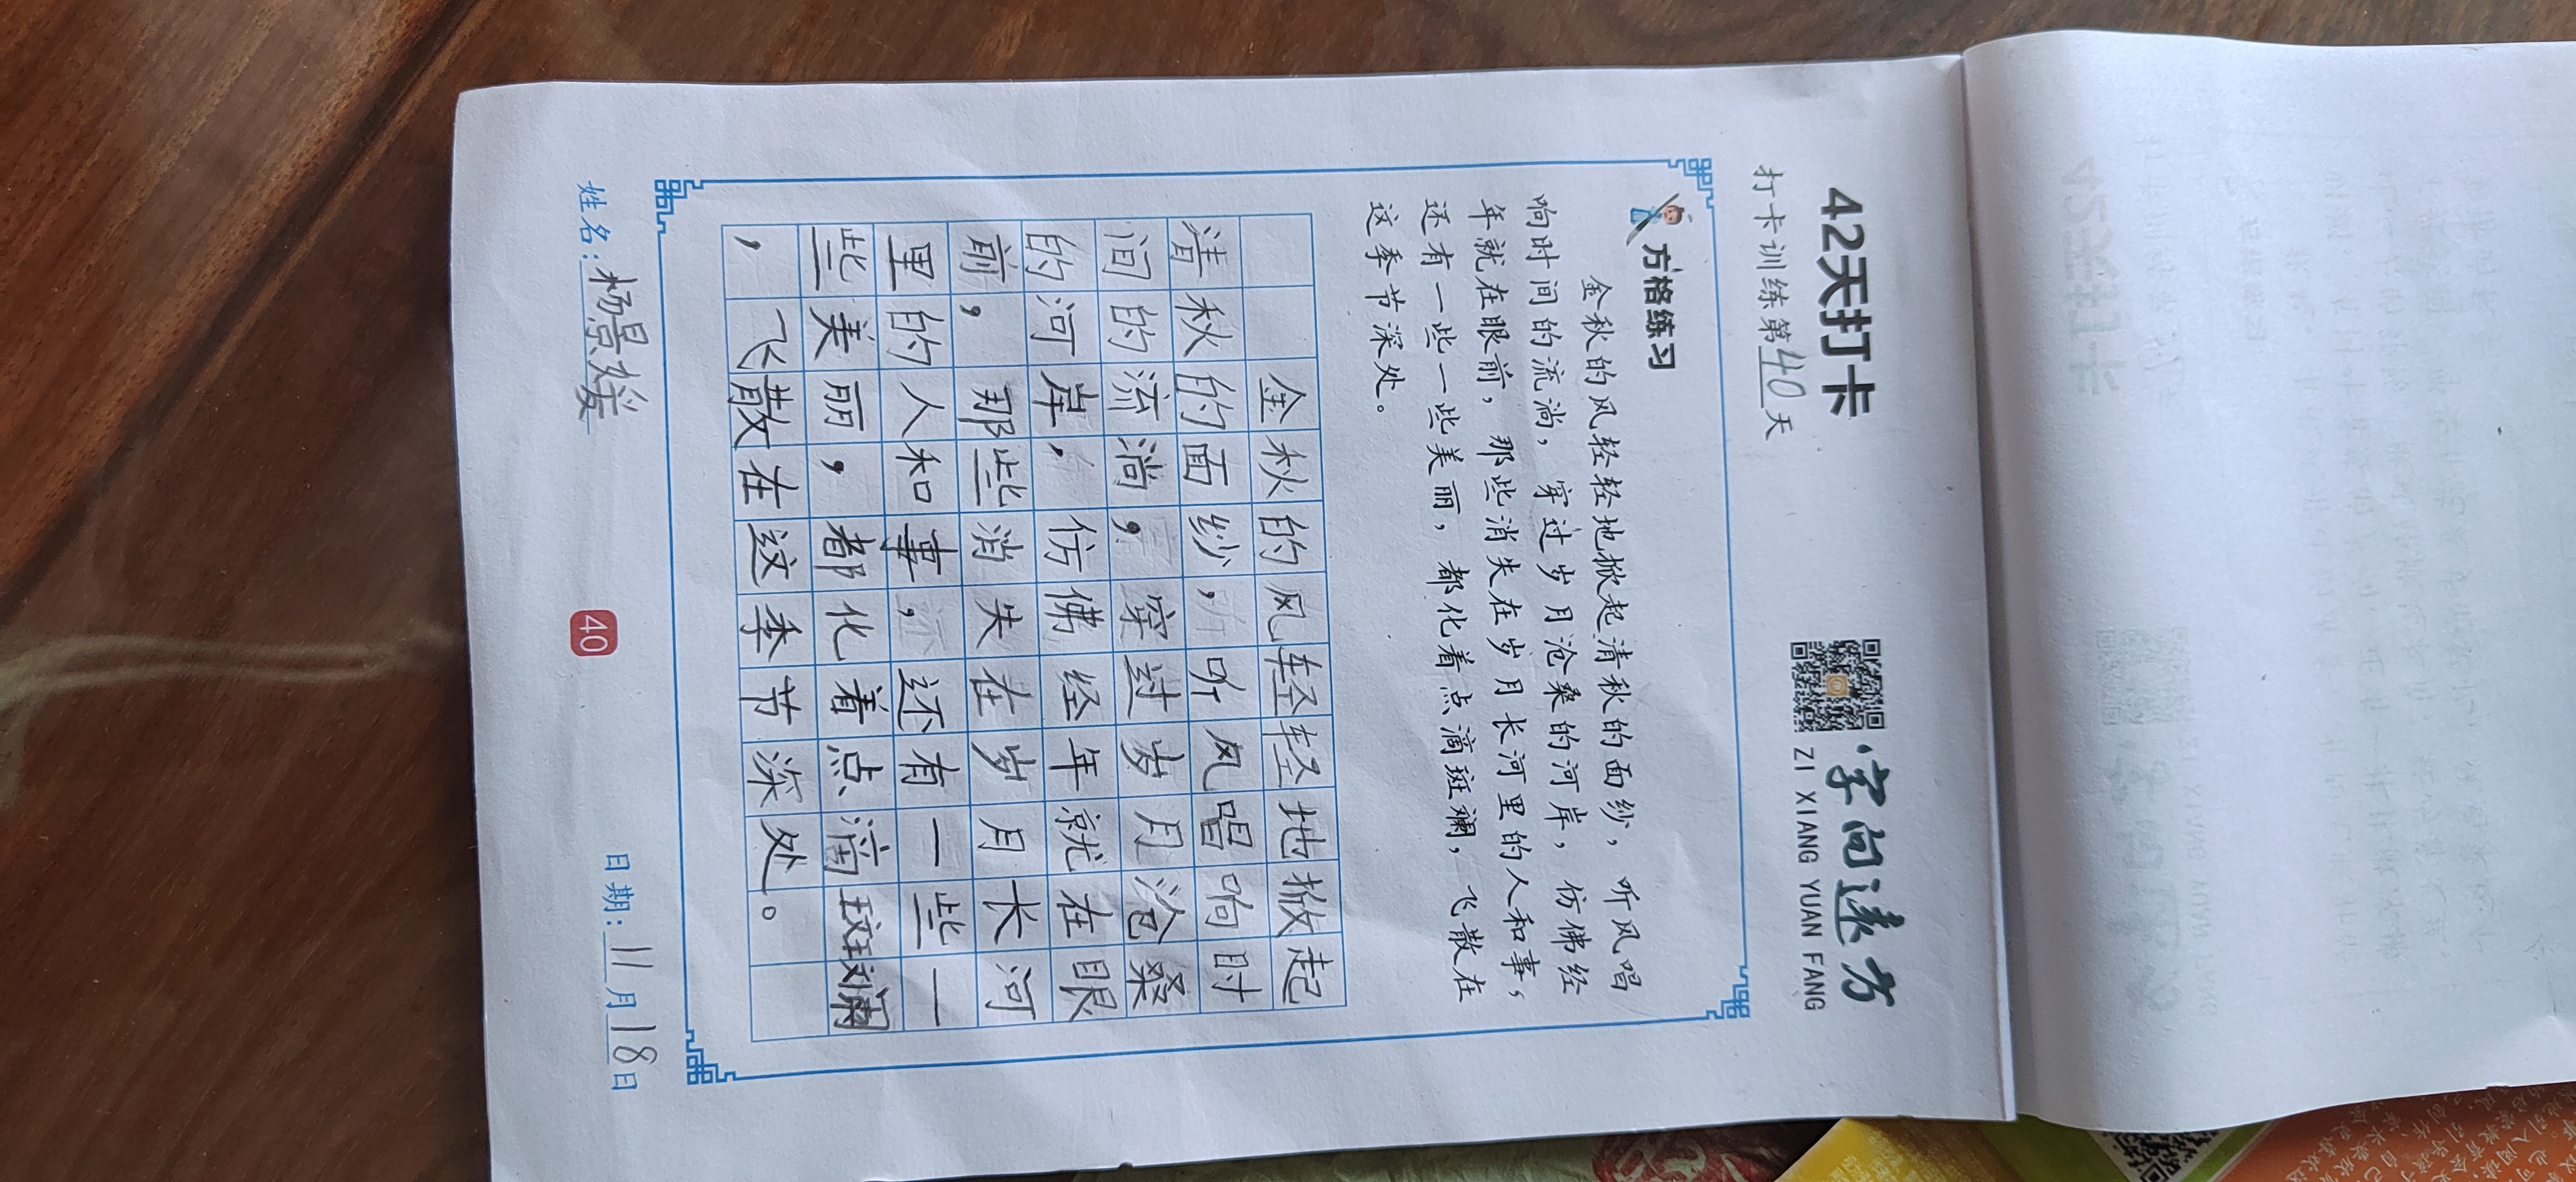 42天打卡
打卡训练第40天
字向远方
ZI XIANG YUAN FANG
方格练习
金秋的风轻轻地掀起清秋的面纱，听风唱
响时间的流淌，穿过岁月沧桑的河岸，仿佛经
年就在眼前，那些消失在岁月长河里的人和事，
还有一些一些美丽，都化着点滴斑斓，飞散在
这季节深处。
金秋的风轻轻地掀起
清秋的面纱，听风唱响时
间的流淌，穿过岁月沧桑
的河岸，仿佛经年就在眼
前，那些消失在岁月长河
里的人和事，还有一些一
些美丽，都化着点滴斑斓
，飞散在这季节深处。
姓名：杨景媛
40
日期：11月18日